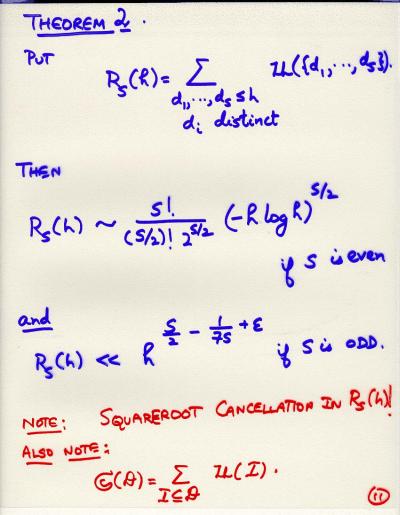 THEOREM 2.
PUT
R_s(h) = ∑ 𝔖({d_1, ..., d_s}).
d_1, ..., d_s ≤ h
d_i distinct
THEN
R_s(h) ~ s!/((s/2)! 2^{s/2}) (-h log h)^{s/2}
if s is even
and
R_s(h) << h^{s/2 - 1/(7s) + ε} if s is ODD.
NOTE: SQUAREROOT CANCELLATION IN R_s(h)!
ALSO NOTE:
𝔖(D) = ∑_{I⊆D} 𝔖(I).
11